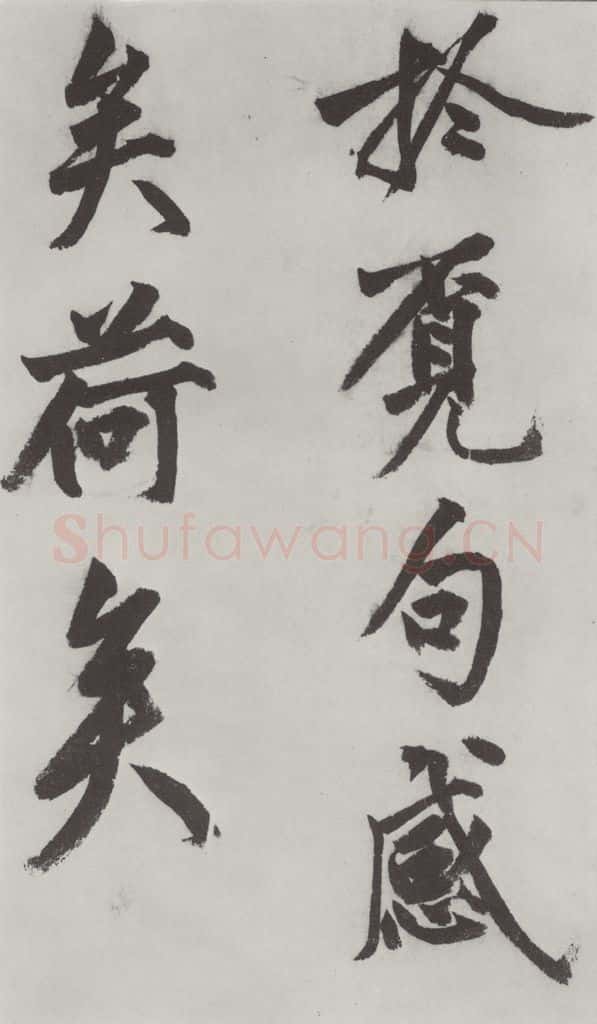 於覔句感
矣荷矣
Shufawang.CN